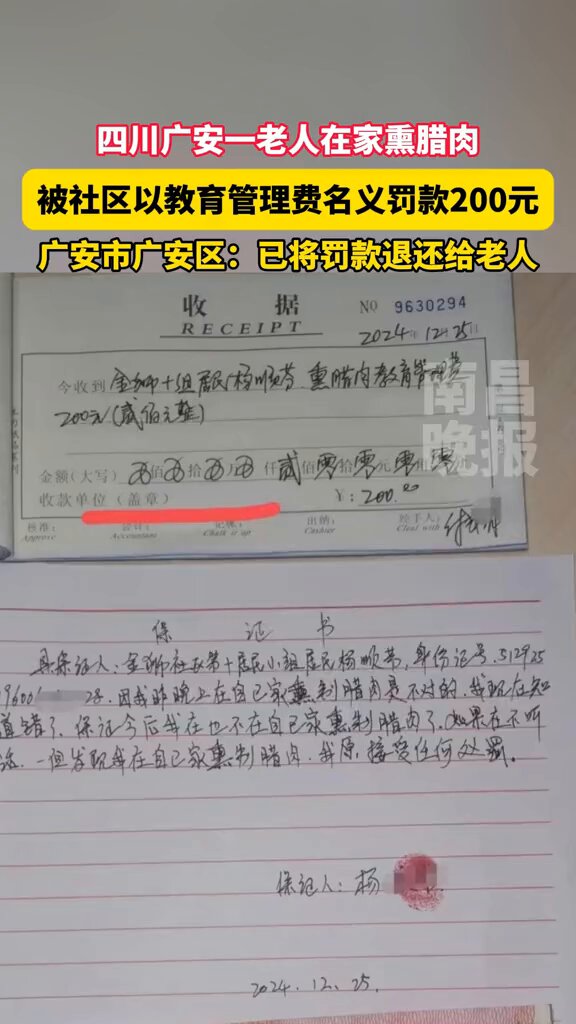 四川广安一老人在家熏腊肉
被社区以教育管理费名义罚款200元
广安市广安区：已将罚款退还给老人
收 据 NO 9630294
RECEIPT
2024年12月25日
今收到 金狮十组居民杨顺芬 熏腊肉教育管理费
200元(贰佰元整)
金额(大写) 佰 拾 万 仟 贰 佰 零 拾 零 元 零 角 零
收款单位(盖章) ￥：200.00
核准： 会计： 记账： 出纳： 经手人：
Approve Accountant Chalk it up Cashier Cleal with
南昌
晚报
保 证 书
具保证人：金狮社区第十居民小组居民杨顺芬，身份证号.512925
因我昨晚上在自己家熏制腊肉是不对的.我现在知
道错了.保证今后我在也不在自己家熏制腊肉了.如果在不听
话.一但发现我在自己家熏制腊肉.我愿接受任何处罚。
保证人：杨
2024.12.25.